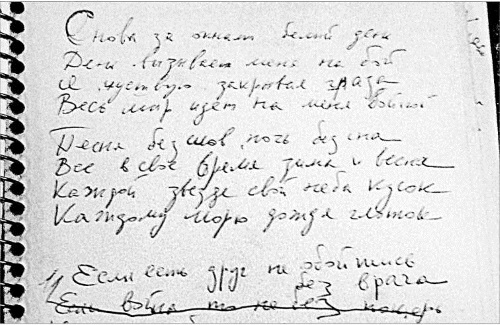 Снова за окнами белый день
День вызывает меня на бой
Я чувствую закрывая глаза
Весь мир идет на меня войной
Песня без слов, ночь без сна
Все в свое время зима и весна
Каждой звезде свой неба кусок
Каждому морю дождя глоток
Если есть друг не обойтись
без врача
Если война то не без